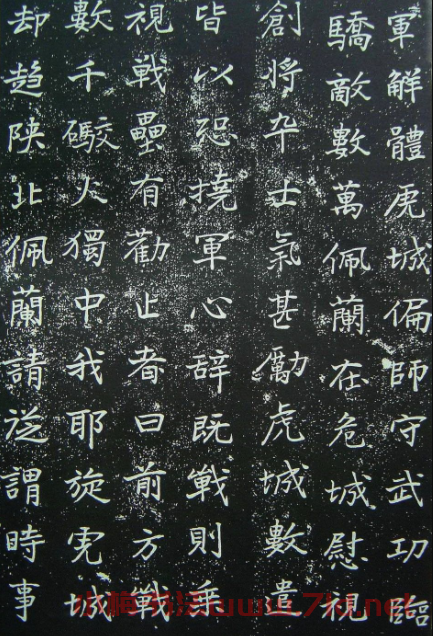 軍解體虎城偏師守武功臨
驕敵數萬佩蘭在危城慰視
創將卒士氣甚勵虎城數遣
皆以恐撓軍心辞既戰則
視戰壘有勸止者曰前方戰
數千火獨中我耶旋虎城
却趋陕北佩蘭請從謂時事